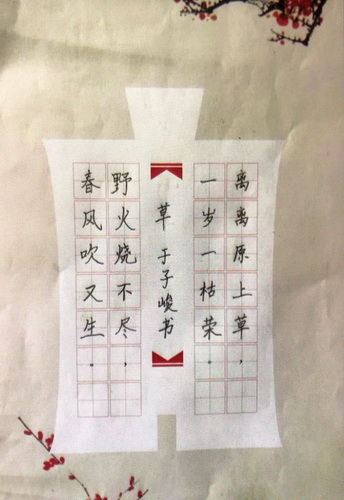 离离原上草，
一岁一枯荣。
草 于子峻书
野火烧不尽，
春风吹又生。